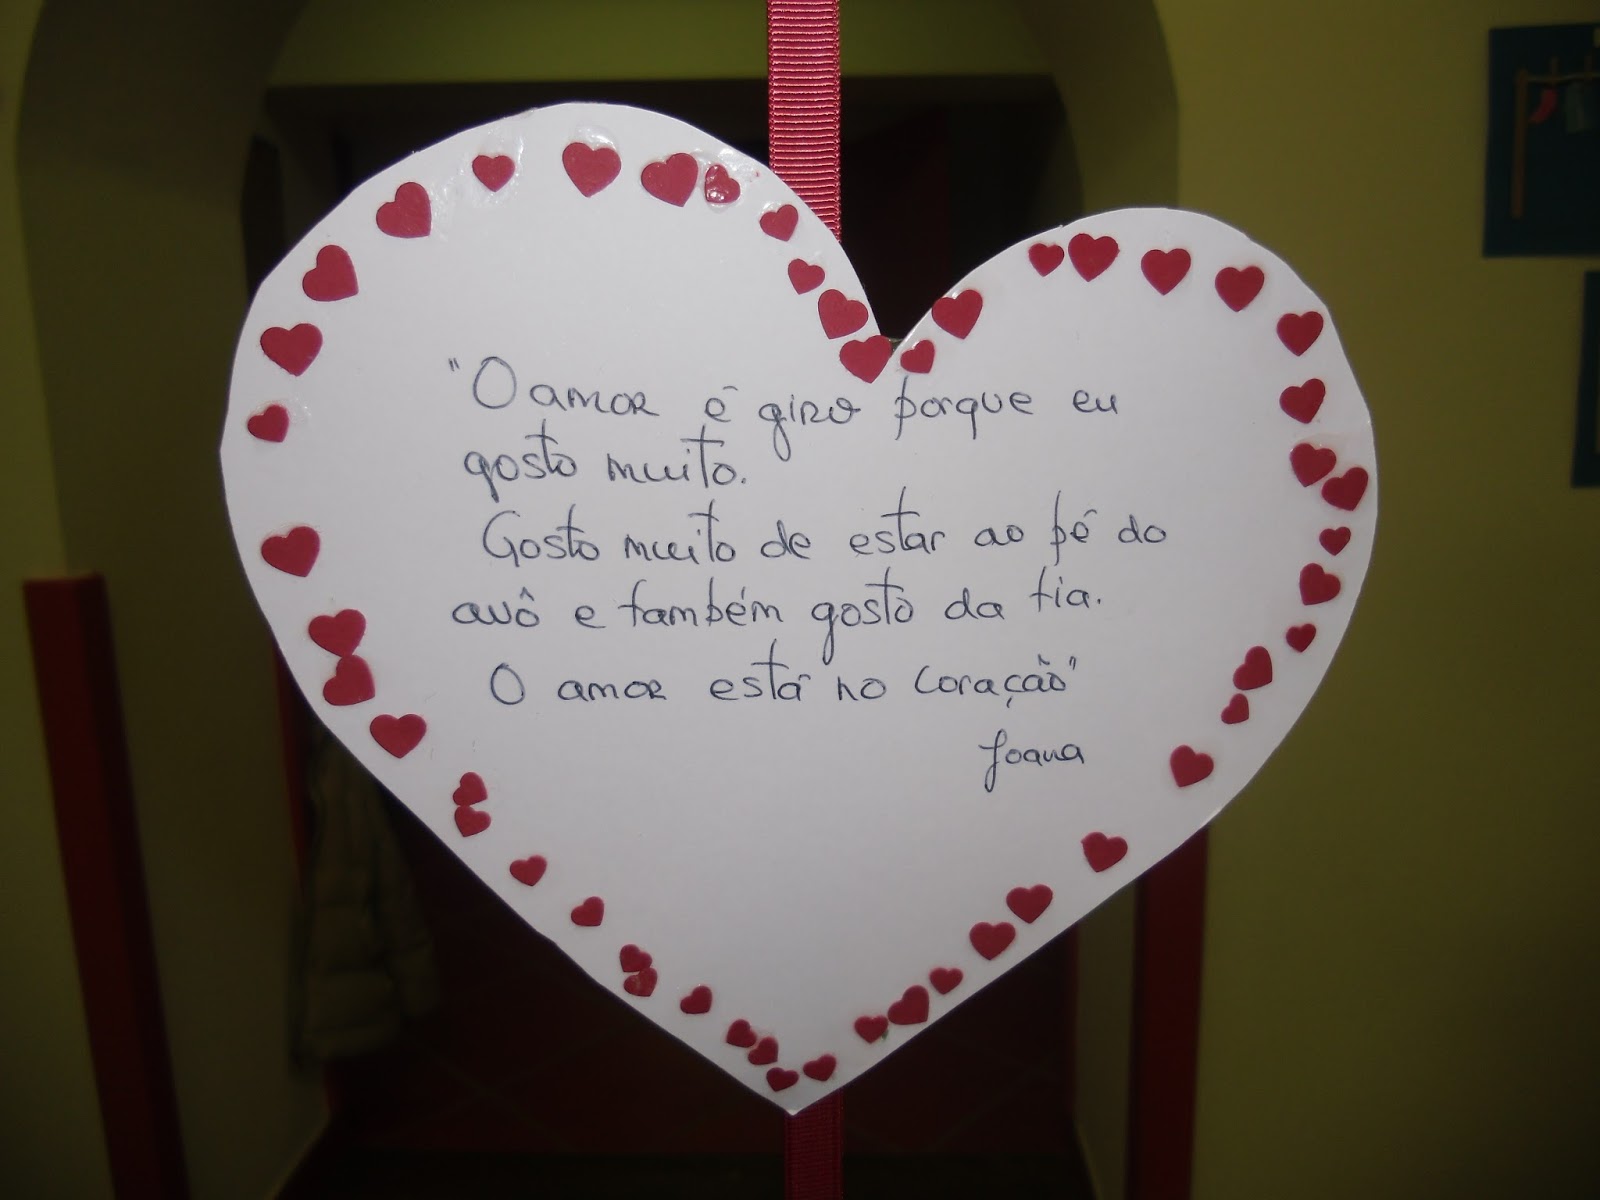 "O amor é giro porque eu
gosto muito.
Gosto muito de estar ao pé do
avô e também gosto da tia.
O amor está no coração"
Joana